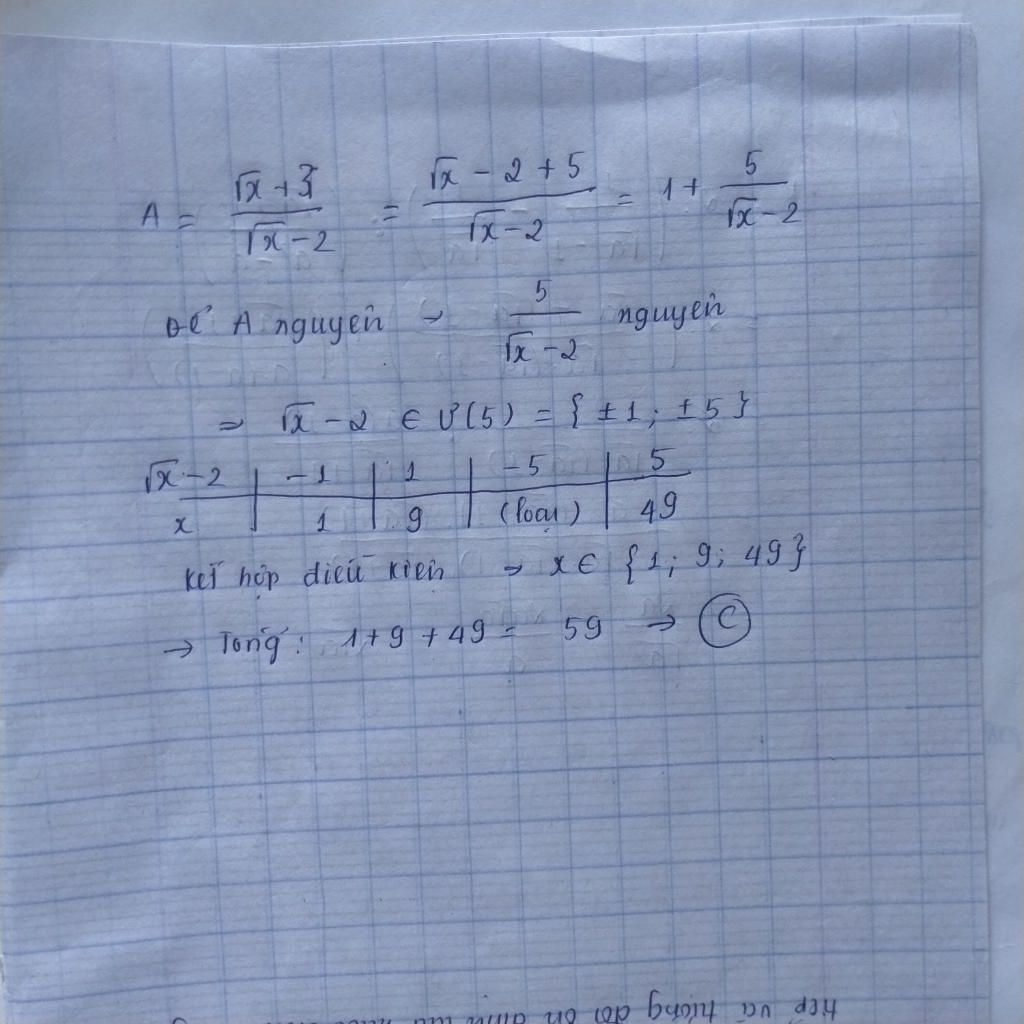 A = (√x + 3)/(√x - 2) = (√x - 2 + 5)/(√x - 2) = 1 + 5/(√x - 2)
Để A nguyên → 5/(√x - 2) nguyên
⇒ √x - 2 ∈ Ư(5) = {±1; ±5}
√x - 2 | -1 | 1 | -5 | 5
x | 1 | 9 | (loại) | 49
Kết hợp điều kiện → x ∈ {1; 9; 49}
→ Tổng: 1 + 9 + 49 = 59 → C